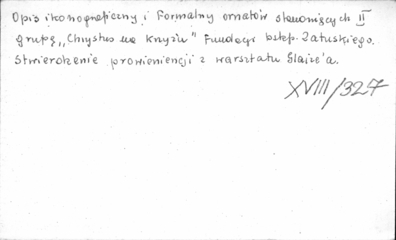 Opis ikonograficzny i formalny ornatów stanowiących II
grupę „Chrystus na krzyżu" Fundacji bskp. Załuskiego.
Stwierdzenie prowieniencji z warsztatu Glaize'a.
XVIII/327